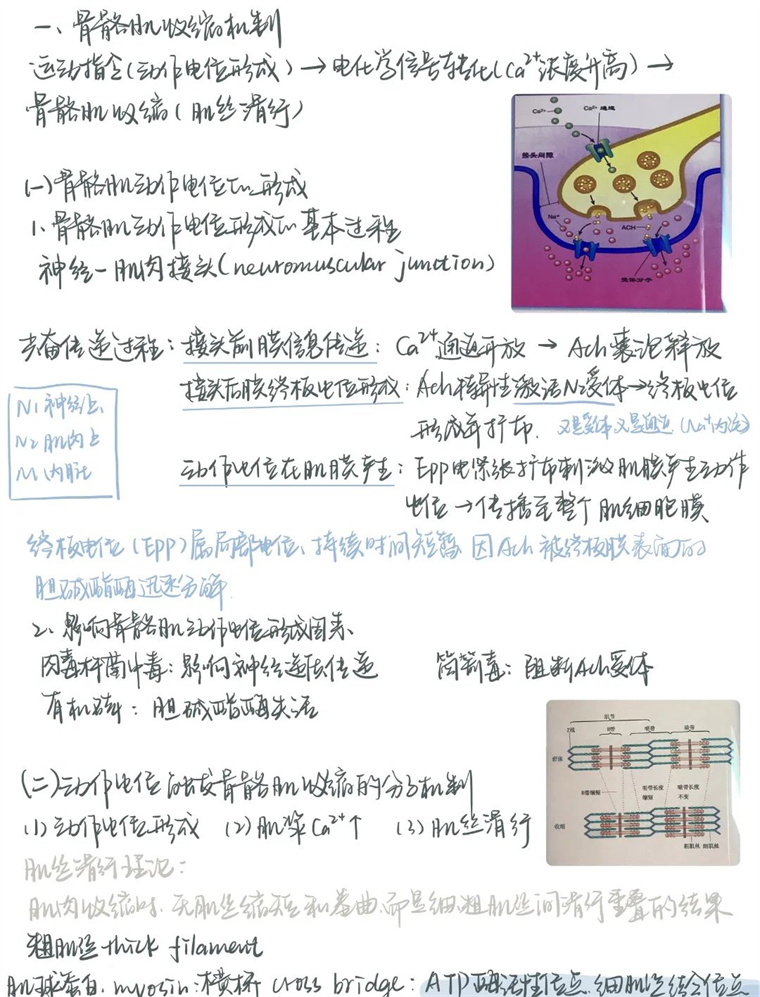 一、骨骼肌收缩的机制
运动指令(动作电位形成)→电化学信号转化(Ca²⁺浓度升高)→
骨骼肌收缩(肌丝滑行)
Ca²⁺
Ca²⁺ 通道
接头间隙
Na⁺
ACH
受体分子
(一)骨骼肌动作电位的形成
1、骨骼肌动作电位形成的基本过程
神经-肌肉接头(neuromuscular junction)
兴奋传递过程:接头前膜信息传递:Ca²⁺通道开放 → Ach囊泡释放
接头后膜终板电位形成:Ach特异性激活N2受体→终板电位
形成并扩布.又是受体又是通道(Na⁺内流)
N1 神经上
N2 肌肉上
M 内脏
动作电位在肌膜产生:Epp电紧张扩布刺激肌膜产生动作
电位→传播至整个肌细胞膜
终板电位(EPP)属局部电位、持续时间短暂 因Ach被终板膜表面的
胆碱酯酶迅速分解
2、影响骨骼肌动作电位形成因素
肉毒杆菌中毒:影响神经递质传递 筒箭毒:阻断Ach受体
有机磷:胆碱酯酶失活
肌节
Z线
H带
明带
暗带
舒张
H带缩短
明带长度
缩短
暗带长度
不变
收缩
粗肌丝 细肌丝
(二)动作电位引发骨骼肌收缩的分子机制
(1)动作电位形成 (2)肌浆Ca²⁺↑ (3)肌丝滑行
肌丝滑行理论:
肌肉收缩时.无肌丝缩短和卷曲.而是细.粗肌丝间滑行重叠的结果
粗肌丝thick filament
肌球蛋白.myosin:横桥 cross bridge:ATP酶活性位点.细肌丝结合位点